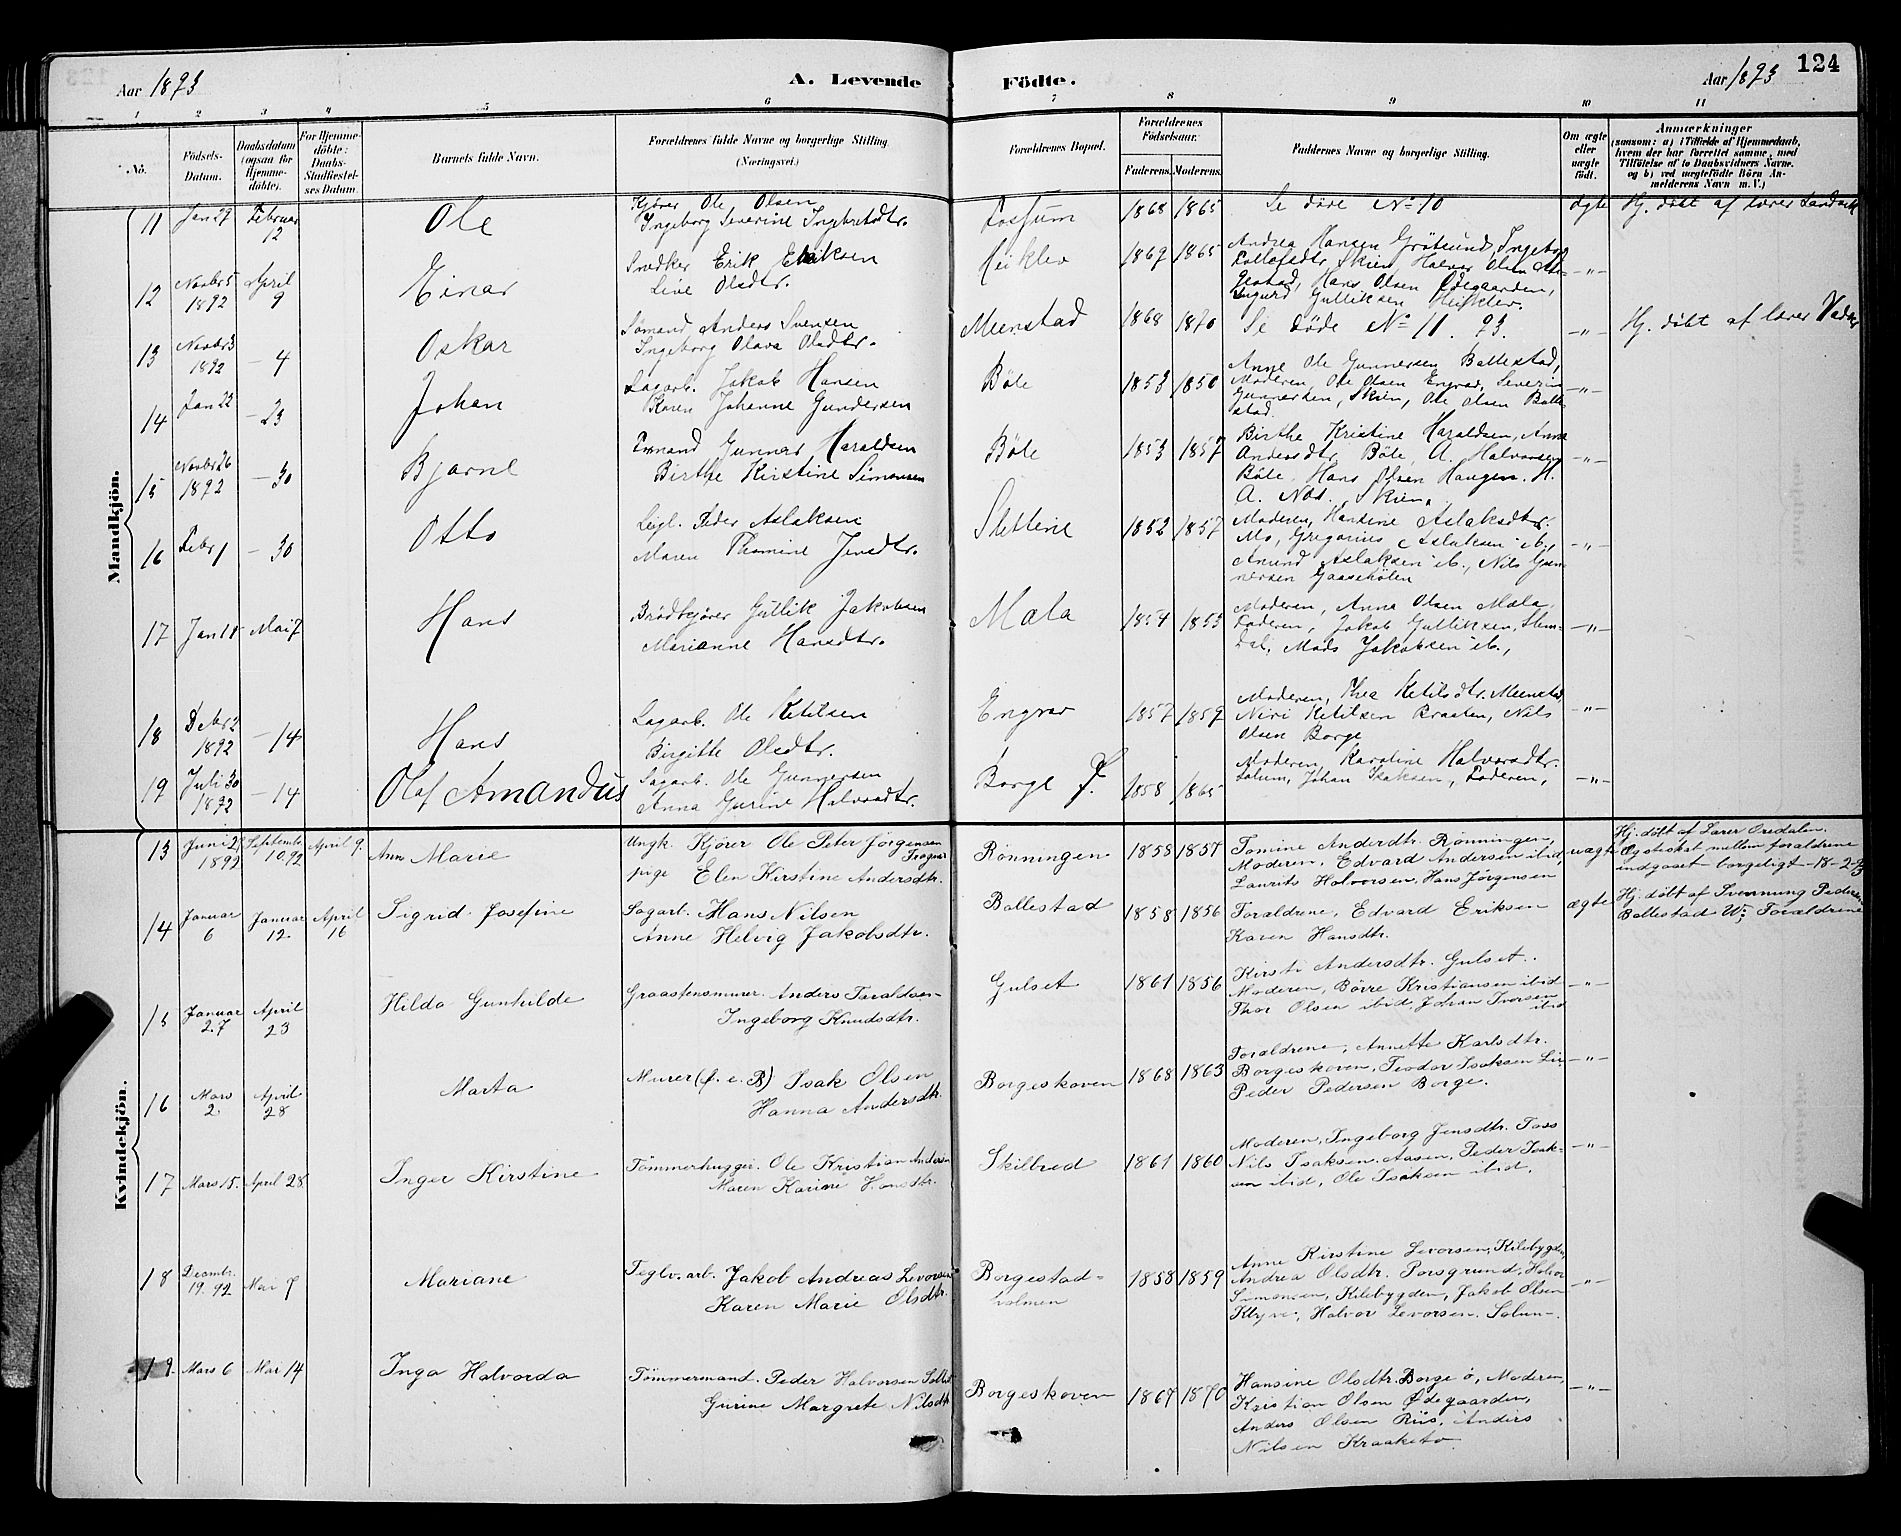 Aar 1893 A. Levende Födte. Aar 1893 124
1 2 3 4 5 6 7 8 9 10 11
No. Födsels-Datum. Daabsdatum (ogsaa for Hjemmedöbte). For Hjemmedöbte: Daabs-Stadfæstelses Datum. Barnets fulde Navn. Forældrenes fulde Navne og borgerlige Stilling. (Næringsvei.) Forældrenes Bopæl. Forældrenes Födselsaar. Faderens. Moderens. Faddernes Navne og borgerlige Stilling. Om ægte eller uægte födt. Anmærkninger (saasom: a) i Tilfælde af Hjemmedaab, hvem der har forrettet samme, med Tilföielse af to Daabsvidners Navne, og b) ved uægtefödte Börn Anmelderens Navn m. V.)
Mandkjön.
11 Jan 27 Februar 12 Ole Kjører Ole Olsen
Ingeborg Severine Ingebretsdtr. Fossum 1868 1865 Se døde No 10 ægte Hj. døbt af lærer
12 Novbr 5 1892 April 9 Einar Snedker Erik Eriksen
Live Olsdtr. Heiklev 1867 1865 Andrea Hansen Grötsund, Ingeborg
Skien, Halvor Olsen
Hans Olsen Ødegaarden,
Sigurd Gulliksen Heiklev. -"-
13 Novbr 3 1892 - 4 Oskar Sømand Anders Svensen
Ingeborg Olava Olsdtr. Meenstad 1868 1870 Se døde No 11. 93. -"- Hj. døbt af lærer
14 Jan 22 - 23 Johan Sagarb. Jakob Hansen
Karen Johanne Gundersen Bøle 1853 1850 Anne Ole Gunnersen Ballestad,
Moderen, Ole Olsen Engrav, Severin
Gunnersen, Skien, Ole Olsen Balle-
stad. -"-
15 Novbr 26 1892 - 30 Bjarne Gunnar Haraldsen
Birthe Kirstine Simonsen Bøle 1853 1857 Birthe Kristine Haraldsen, Anne
Andersdtr. Bøle, A. Halvorsen
Bøle, Hans Olsen Haugen. H.
A. Næs. Skien. -"-
16 Febr 1 - 30 Otto Leigl. Peder Aslaksen
Maren Thomine Jensdtr. Slettene 1852 1857 Moderen, Hansine Aslaksdtr.
Mo, Gregorius Aslaksen ib.,
Anund Aslaksen ib., Nils Gun-
nersen Gaasehølen -"-
17 Jan 11 Mai 7 Hans Brödkjører Gullik Jakobsen
Marianne Hansdtr. Mæla 1854 1853 Moderen, Anna Olsen Mæla,
Faderen, Jakob Gulliksen, Slem-
dal, Mads Jakobsen ib., -"-
18 Debr 2 1892 - 14 Hans Sagarb. Ole Ketilsen
Birgitte Olsdtr. Engrav 1857 1859 Moderen, Thea Ketilsdtr. Meenstad
Niri Ketilsen Braaten, Nils
Olsen Borge -"-
19 Juli 30 1892 - 14 Olaf Amandus Sagarb. Ole Gunnersen
Anna Gurine Halvorsdtr. Borge Ø. 1858 1865 Moderen, Karoline Halvorsdtr.
Solum, Johan Isaksen, Faderen, -"-
Kvindekjön.
13 Juni 27 1892 Septemb. 10.92 April 9. Ann Marie Ungk. Kjører Ole Peter Jørgensen
Pige Elen Kirstine Andersdtr. Rønningen 1858 1857 Tomine Andersdtr. Rønningen,
Moderen, Edvard Andersen ibid.
Laurits Halvorsen, Hans Jørgensen uægte Hj. døbt af Lærer Oredalen.
Ægteskab mellem forældrene
indgaaet borgeligt 18-2-93
14 Januar 6 Januar 12 April 16 Sigrid Josefine Sagarb. Hans Nilsen
Anne Helvig Jakobsdtr. Ballestad 1858 1856 Forældrene, Edvard Eriksen
Karen Hansdtr. ægte Hj. døbt af Svennung Pedersen
Ballestad V; Forældrene
15 Januar 27 April 23 Hilda Gunhilde Graastensmurer Anders Taraldsen
Ingeborg Knudsdtr. Gulset 1861 1856 Kirsti Andersdtr. Gulset.
Moderen, Børre Kristiansen ibid
Thor Olsen ibid, Johan Iversen ibid -"-
16 Mars 2. April 28 Marta Murer (f. e. B) Isak Olsen
Hanna Andersdtr. Borgeskoven 1868 1863 Forældrene, Annette Karlsdtr.
Borgeskoven, Teodor Isaksen Lie
Peder Pedersen Borge. -"-
17 Mars 15. April 28 Inger Kirstine Tömmerhugger. Ole Kristian Andersen
Maren Karine Hansdtr. Skilbred 1861 1860 Moderen, Ingeborg Jensdtr. Foss
Nils Isaksen Aasen, Peder Isak-
sen ibid, Ole Isaksen ibid. -"-
18 Decmbr. 19.92 Mai 7 Mariane Teglv.arb. Jakob Andreas Levorsen
Karen Marie Olsdtr. Borgestad-
holmen 1858 1859 Anne Kirstine Levorsen, Kilebygden,
Andrea Olsdtr. Porsgrund, Halvor
Simonsen, Kilebygden, Jakob Olsen
Klyve, Halvor Levorsen. Solum. -"-
19. Mars 6 Mai 14 Inga Halvorda Tömmermand. Peder Halvorsen
Gurine Margrete Nilsdtr. Borgeskoven 1867 1870 Hansine Olsdtr. Borge ø, Moderen,
Kristian Olsen Ødegaarden,
Anders Olsen Riis, Anders
Nilsen Kraaketo -"-